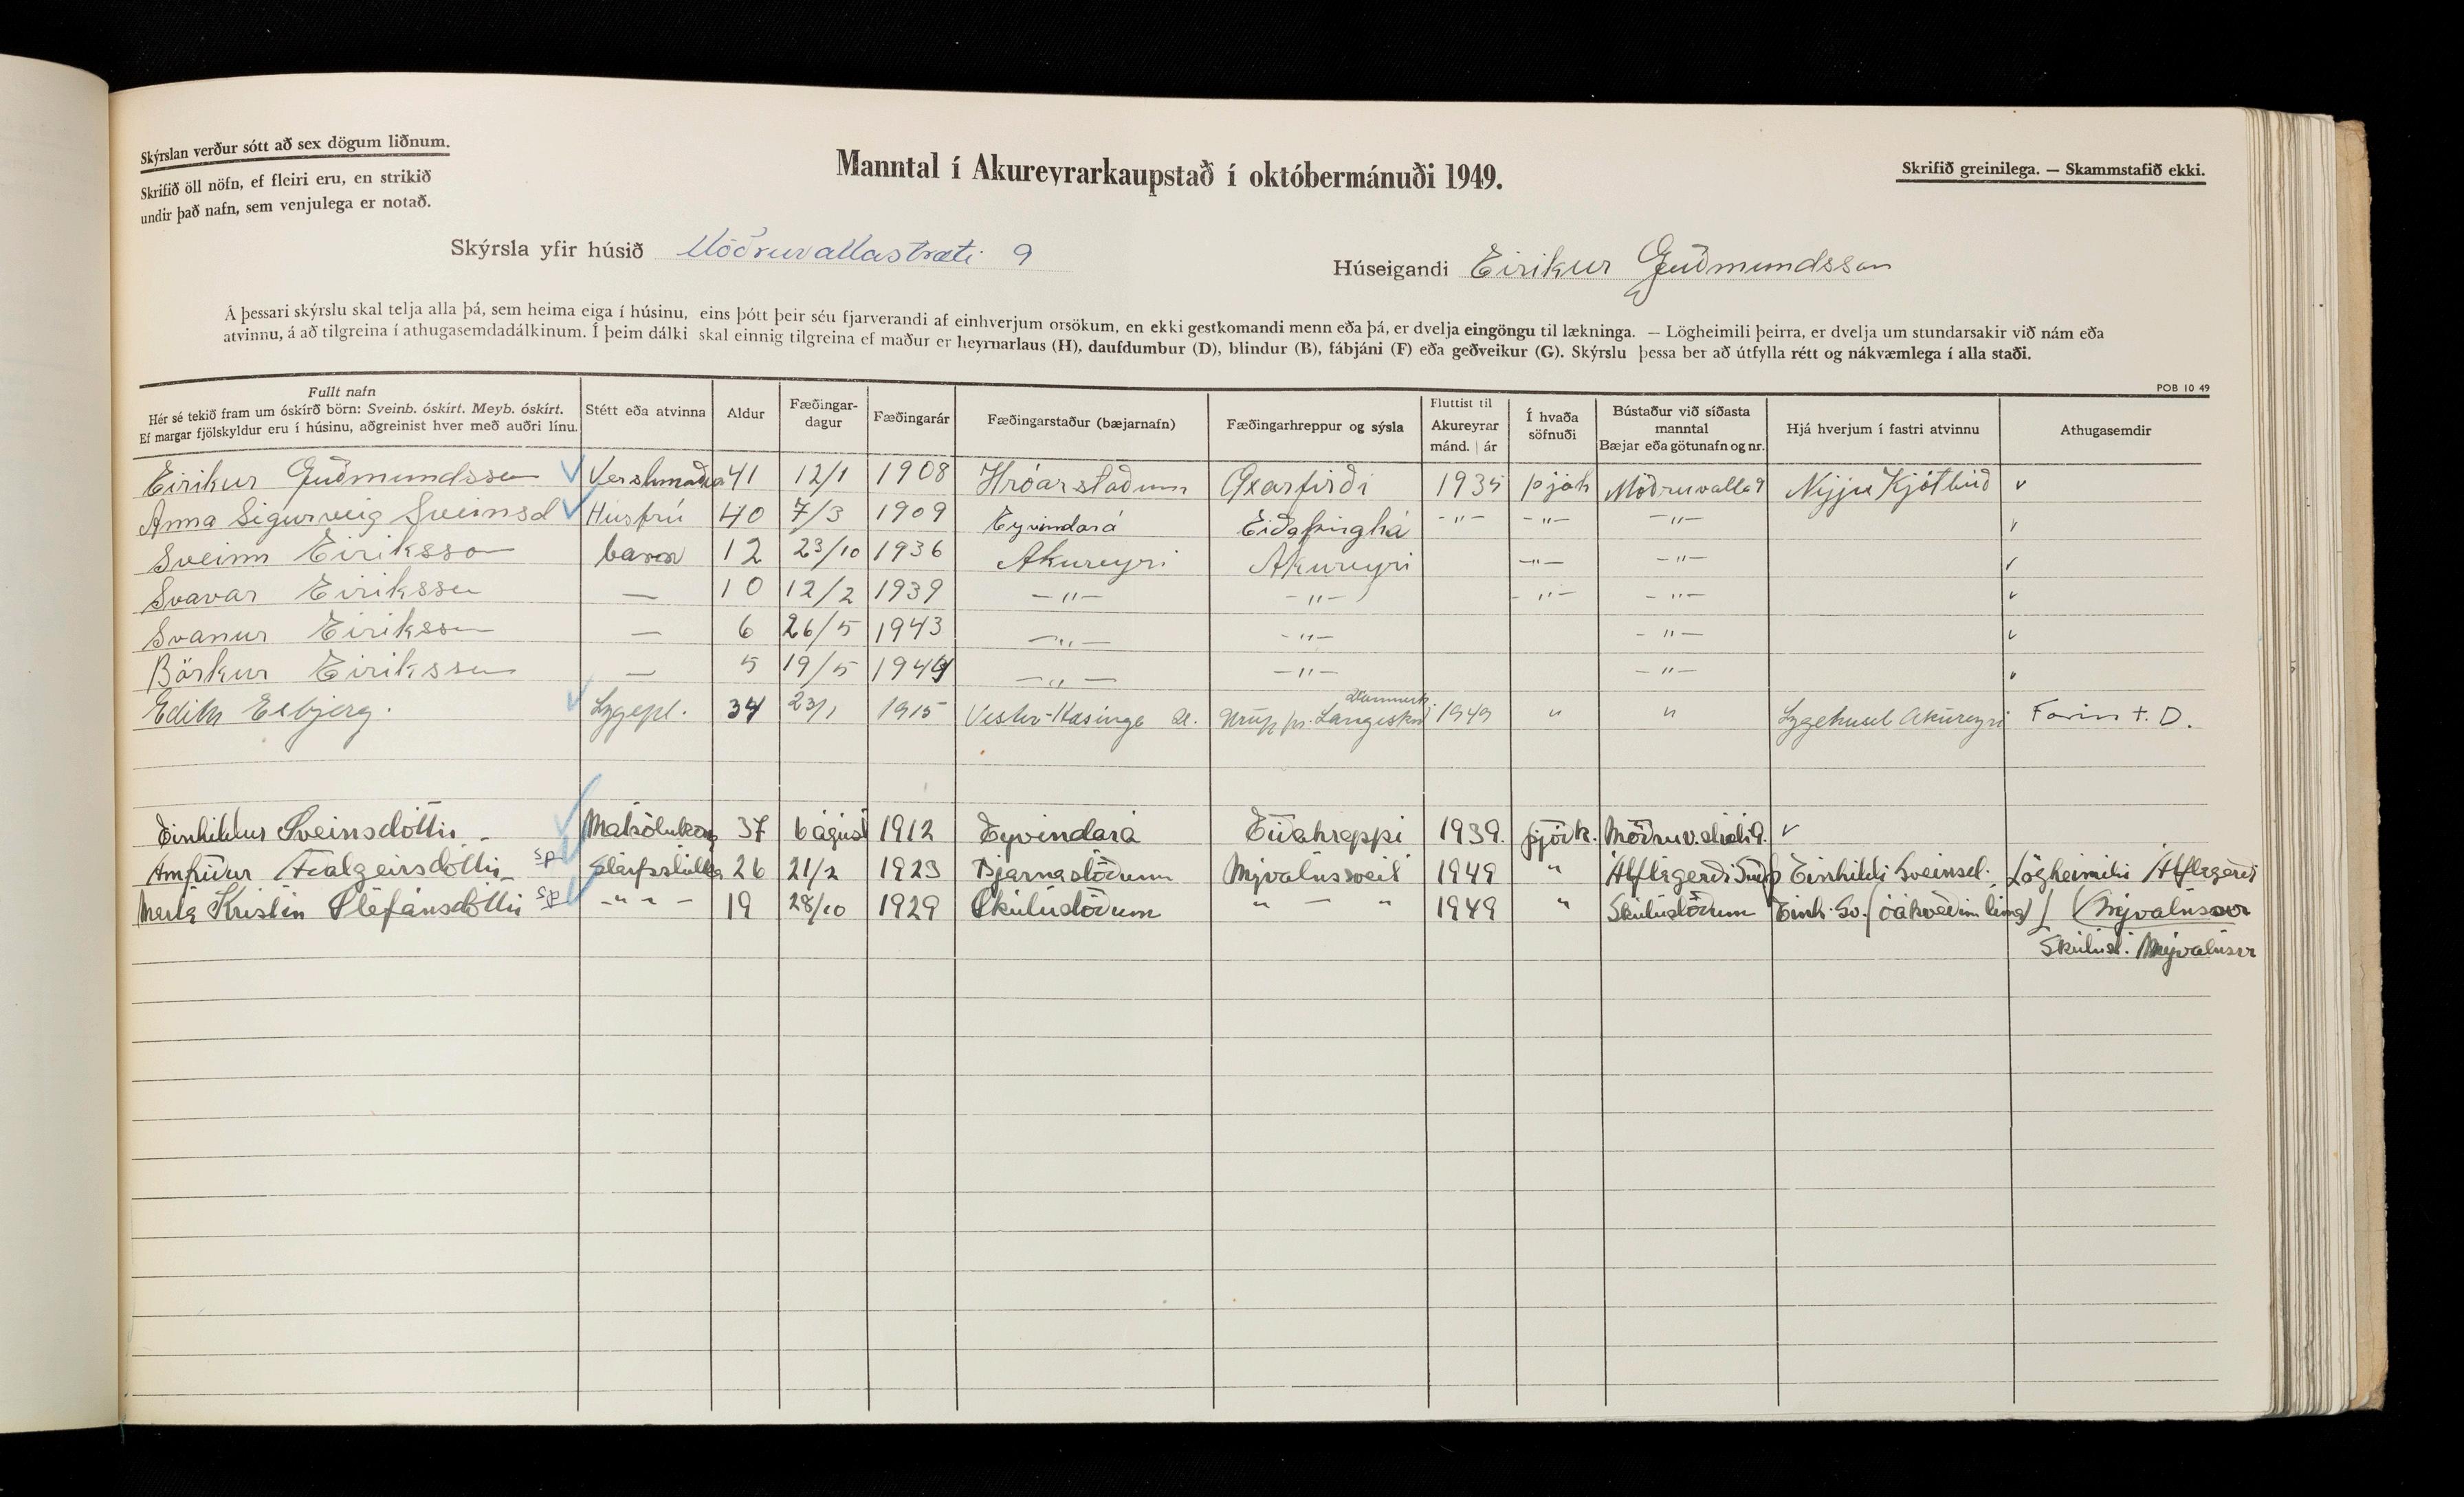 Skýrslan verður sótt að sex dögum liðnum.
Skrifið öll nöfn, ef fleiri eru, en strikið
undir það nafn, sem venjulega er notað.
Manntal í Akureyrarkaupstað í októbermánuði 1949.
Skrifið greinilega. — Skammstafið ekki.
Skýrsla yfir húsið Möðruvallastræti 9
Húseigandi Eirikur Guðmundsson
Á þessari skýrslu skal telja alla þá, sem heima eiga í húsinu, eins þótt þeir séu fjarverandi af einhverjum orsökum, en ekki gestkomandi menn eða þá, er dvelja eingöngu til lækninga. — Lögheimili þeirra, er dvelja um stundarsakir við nám eða
atvinnu, á að tilgreina í athugasemdadálkinum. Í þeim dálki skal einnig tilgreina ef maður er heyrnarlaus (H), daufdumbur (D), blindur (B), fábjáni (F) eða geðveikur (G). Skýrslu þessa ber að útfylla rétt og nákvæmlega í alla staði.
POB 10 49
Fullt nafn
Hér sé tekið fram um óskírð börn: Sveinb. óskírt. Meyb. óskírt.
Ef margar fjölskyldur eru í húsinu, aðgreinist hver með auðri línu.
Stétt eða atvinna
Aldur
Fæðingar-
dagur
Fæðingarár
Fæðingarstaður (bæjarnafn)
Fæðingarhreppur og sýsla
Fluttist til
Akureyrar
mánd. | ár
Í hvaða
söfnuði
Bústaður við síðasta
manntal
Bæjar eða götunafn og nr.
Hjá hverjum í fastri atvinnu
Athugasemdir
Eirikur Guðmundsson 41 12/1 1908 Hróarstaðum Öxarfirði 1935 þjóðk Möðruvalla 9 Nýja Kjötbúð
Anna Sigurveig Sveinsd Húsfrú 40 7/3 1909 Eyvindará Eiðaþinghá -"- -"- -"-
Sveinn Eiriksson barn 12 23/10 1936 Akureyri Akureyri -"- -"-
Svavar Eiriksson — 10 12/2 1939 -"- -"- -"- -"-
Svanur Eiriksson — 6 26/5 1943 -"- -"- -"-
Börkur Eiriksson — 5 19/5 1944 -"- -"- -"-
Danmark
Edith Esbjerg. Sygepl. 34 23/1 1915 Vester-Kasinge 1949 " " Sygehuset Akureyri Farin t. D.
Einhildur Sveinsdóttir Matsölukona 37 6 ágúst 1912 Eyvindará Eiðahreppi 1939. þjóðk. Möðruv.stræti 9.
Arnfríður Sp Starfsstúlka 26 21/2 1923 Bjarnastöðum Mývatnssveit 1949 " Álftagerði Einhildi Sveinsd. Lögheimili Álftagerði
María Kristín Stefánsdóttir Sp -"- 19 28/10 1929 Skútustöðum " — " 1949 " Skútustöðum Einh. Sv. (óákveðinn tíma) (Mývatnssv
Skútust. Mývatnssv